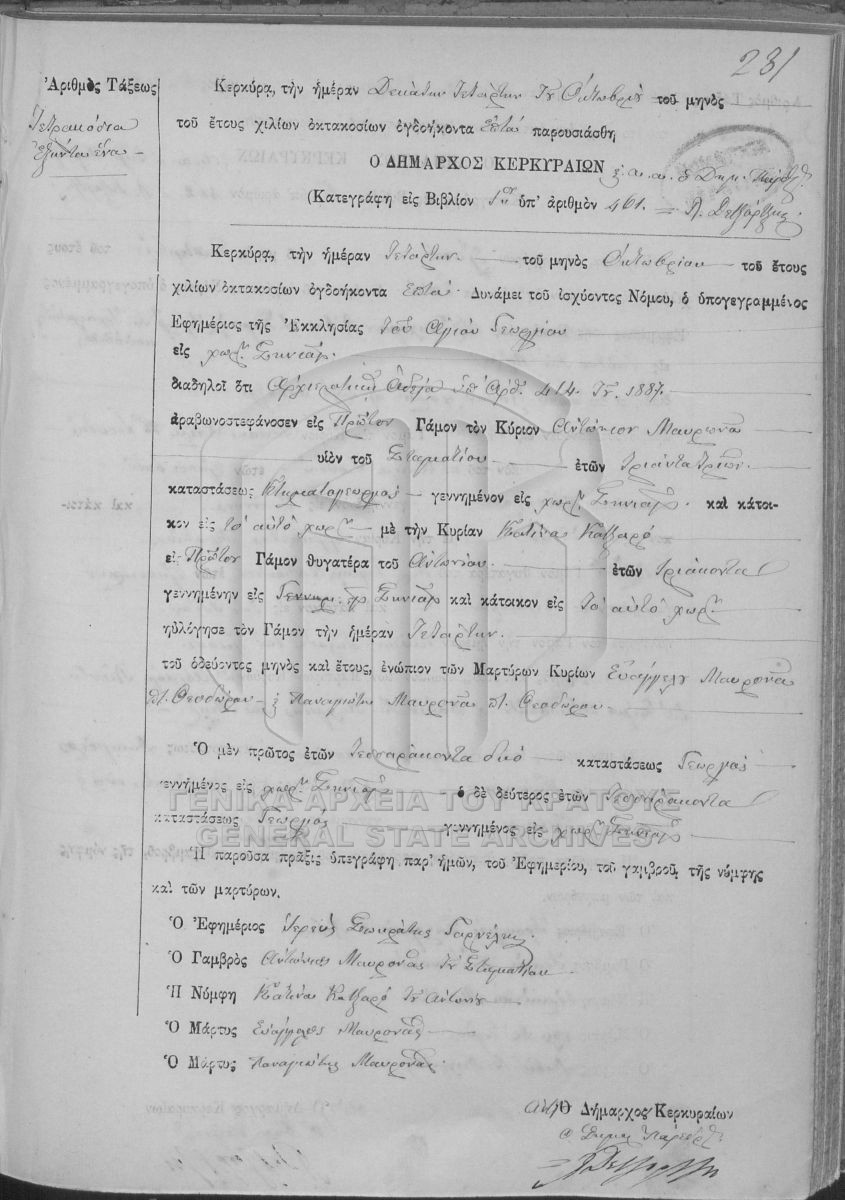 231
Ἀριθμὸς Τάξεως
Τετρακόσια
ἑξῆντα ἕνα —
Κερκύρᾳ, τὴν ἡμέραν Δεκάτην Τετάρτην Ὀκτωβρίου τοῦ μηνὸς
τοῦ ἔτους χιλίων ὀκτακοσίων ὀγδοήκοντα ἑπτὰ παρουσιάσθη
Ο ΔΗΜΑΡΧΟΣ ΚΕΡΚΥΡΑΙΩΝ
(Κατεγράφη εἰς Βιβλίον ὑπ' ἀριθμὸν 461.
Κερκύρᾳ, τὴν ἡμέραν Τετάρτην τοῦ μηνὸς Ὀκτωβρίου τοῦ ἔτους
χιλίων ὀκτακοσίων ὀγδοήκοντα ἑπτά. Δυνάμει τοῦ ἰσχύοντος Νόμου, ὁ ὑπογεγραμμένος
Ἐφημέριος τῆς Ἐκκλησίας τοῦ Ἁγίου Γεωργίου
εἰς
διαδηλοῖ ὅτι Ἀρχιερατικῇ Ἀδείᾳ ὑπ' Ἀρθ. 414. 1887.
ἀραβωνοστεφάνοσεν εἰς Πρῶτον Γάμον τὸν Κύριον Ἀντώνιον Μαυρωνᾶ
υἱὸν τοῦ Σταματίου ἐτῶν
καταστάσεως γεννημένον εἰς καὶ κάτοι-
κον εἰς τὸ αὐτὸ χωρ. μὲ τὴν Κυρίαν Κατίνα Κατζαρό
εἰς Πρῶτον Γάμον θυγατέρα τοῦ Ἀντωνίου. ἐτῶν τριάκοντα
γεννημένην εἰς καὶ κάτοικον εἰς τὸ αὐτὸ χωρ.
ηὐλόγησε τὸν Γάμον τὴν ἡμέραν Τετάρτην.
τοῦ ὁδεύοντος μηνὸς καὶ ἔτους, ἐνώπιον τῶν Μαρτύρων Κυρίων Εὐαγγέλη Μαυρονᾶ
Θεοδώρου Παναγιώτης Μαυρονᾶ Θεοδώρου.
Ὁ μὲν πρῶτος ἐτῶν τεσσαράκοντα δυό καταστάσεως Γεωργὸς
γεννημένος εἰς ὁ δὲ δεύτερος ἐτῶν τεσσαράκοντα
καταστάσεως Γεωργὸς γεννημένος εἰς
ΓΕΝΙΚΑ ΑΡΧΕΙΑ ΤΟΥ ΚΡΑΤΟΥΣ
GENERAL STATE ARCHIVES
Ἡ παροῦσα πρᾶξις ὑπεγράφη παρ' ἡμῶν, τοῦ Ἐφημερίου, τοῦ γαμβροῦ, τῆς νύμφης
καὶ τῶν μαρτύρων.
Ὁ Ἐφημέριος Ἱερεὺς Σωκράτης
Ὁ Γαμβρὸς Ἀντώνιος Μαυρονᾶς Σταματίου
Ἡ Νύμφη Κατίνα Κατζαρό Ἀντωνίου
Ὁ Μάρτυς Εὐάγγελος Μαυρονᾶς
Ὁ Μάρτυς Παναγιώτης Μαυρονᾶς.
Ὁ Δήμαρχος Κερκυραίων